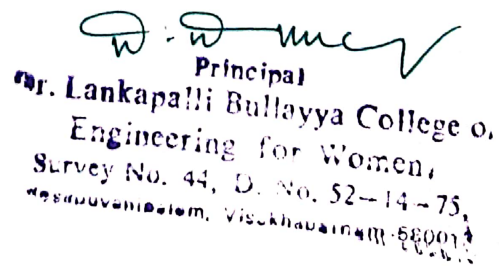 Principal
Dr. Lankapalli Bullayya College of
Engineering for Women,
Survey No. 44, D. No. 52-14-75,
Visakhapatnam-530013